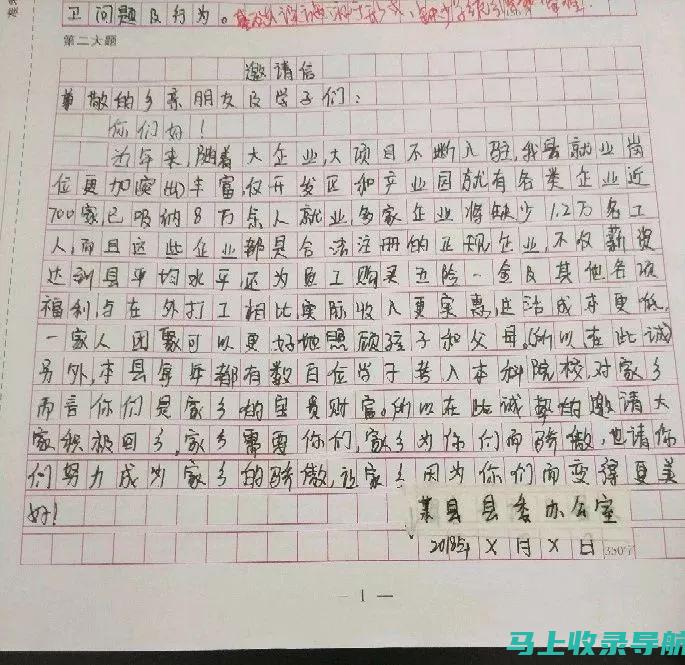 卫问题及行为。
第二大题
邀请信
尊敬的乡亲朋友及学子们：
你们好！
近年来，随着大企业，大项目不断入驻，我县就业岗
位更加突出丰富，仅开发区和产业园就有各类企业近
700家，已吸纳8万余人就业，多家企业将缺少1.2万名工
人，而且这些企业都是合法注册的正规企业，不仅薪资
达到县平均水平还为员工购买五险一金及其他各项
福利，与在外打工相比实际收入更实惠，生活成本更低，
一家人团聚可以更好地照顾孩子和父母。(所以在此诚)
另外，本县每年都有数百位学子考入本科院校，对家乡
而言你们是家乡的宝贵财富。所以在此诚挚的邀请大
家积极回乡，家乡需要你们，家乡为你们而骄傲，也请你
们努力成为家乡的骄傲，让家乡因为你们而变得更美
好！
某县县委办公室
2018年X月X日
350字
— 1 —
马上收录导航